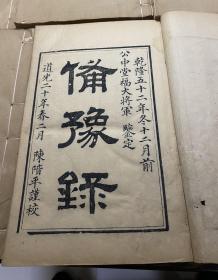 乾隆五十二年冬十二月前
公中堂福大將軍 鑒定
備豫錄
道光二十年春二月 陳階平謹校